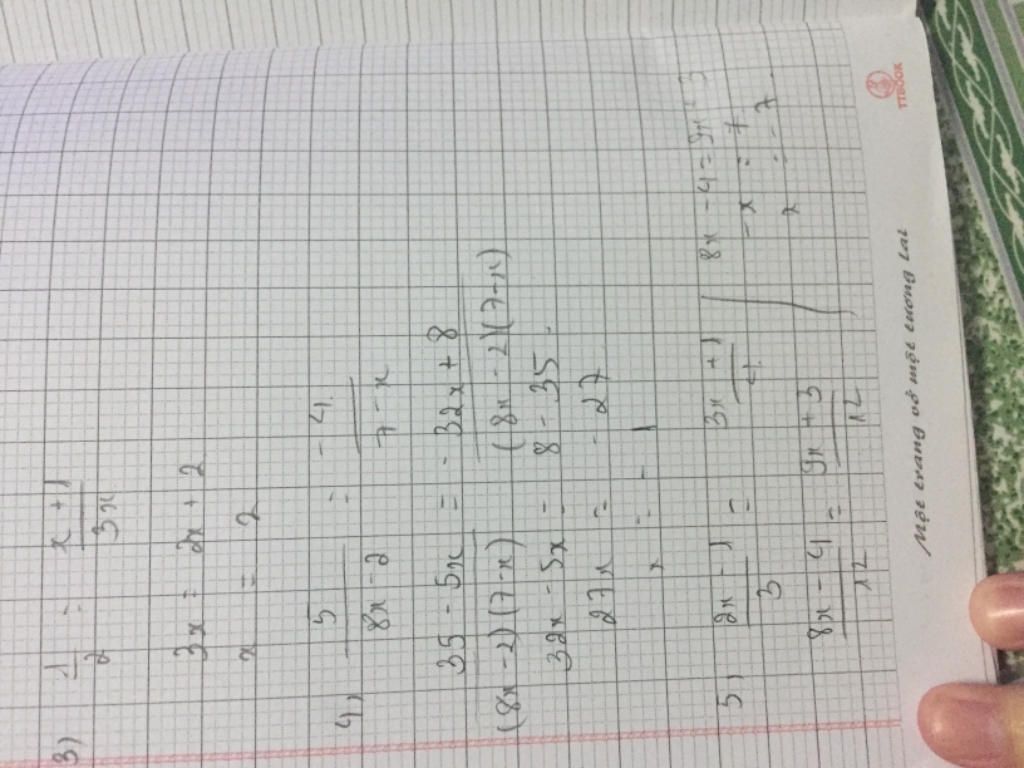 3) 1/2 = x + 1 / 3x
3x = 2x + 2
x = 2
4) 5 / 8x - 2 = - 4 / 7 - x
35 - 5x / (8x - 2)(7 - x) = - 32x + 8 / (8x - 2)(7 - x)
32x - 5x = 8 - 35
27x = - 27
x = - 1
5) 2x - 1 / 3 = 3x + 1 / 4
8x - 4 / 12 = 9x + 3 / 12
8x - 4 = 9x + 3
- x = 7
x = - 7
Một trang vở một tương lai
TTBOOK